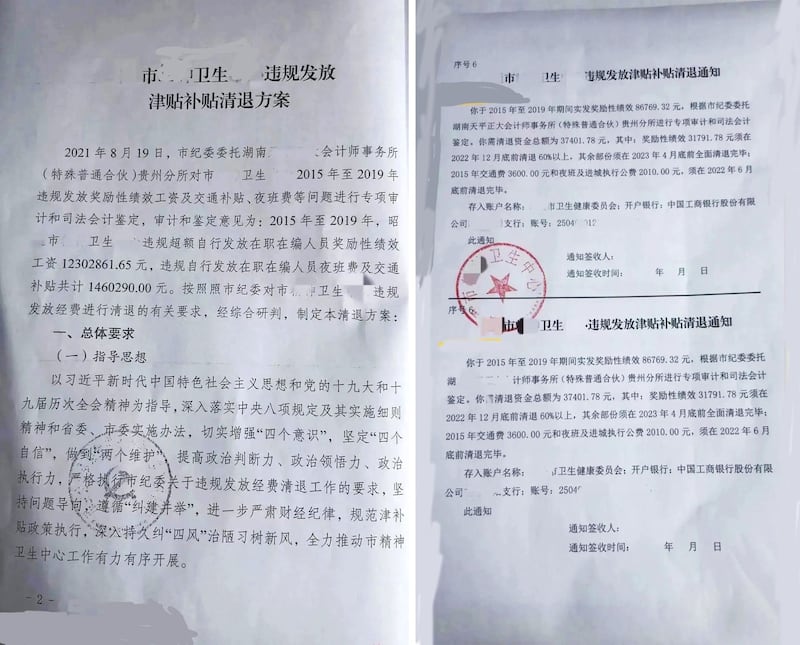 市 卫生 违规发放
津贴补贴清退方案
2021 年 8 月 19 日，市纪委委托湖南 会计师事务所
（特殊普通合伙）贵州分所对市 卫生 2015 年至 2019 年
违规发放奖励性绩效工资及交通补贴、夜班费等问题进行专项审
计和司法会计鉴定，审计和鉴定意见为：2015 年至 2019 年，昭
市 卫生 违规超额自行发放在职在编人员奖励性绩效
工资 12302861.65 元，违规自行发放在职在编人员夜班费及交通
补贴共计 1460290.00 元。按照照市纪委对市 卫生 违规
发放经费进行清退的有关要求，经综合研判，制定本清退方案：
一、总体要求
（一）指导思想
以习近平新时代中国特色社会主义思想和党的十九大和十
九届历次全会精神为指导，深入落实中央八项规定及其实施细则
精神和省委、市委实施办法，切实增强“四个意识”，坚定“四个
自信”，做到“两个维护”，提高政治判断力、政治领悟力、政治
执行力，严格执行市纪委关于违规发放经费清退工作的要求，坚
持问题导向，遵循“纠建并举”，进一步严肃财经纪律，规范津补
贴政策执行，深入持久纠“四风”治陋习树新风，全力推动市精神
卫生中心工作有力有序开展。
- 2 -
序号 6
市 卫生 违规发放津贴补贴清退通知
你于 2015 年至 2019 年期间实发奖励性绩效 86769.32 元，根据市纪委委托
湖南天平正大会计师事务所（特殊普通合伙）贵州分所进行专项审计和司法会计
鉴定。你需清退资金总额为 37401.78 元，其中：奖励性绩效 31791.78 元须在
2022 年 12 月底前清退 60%以上，其余部份须在 2023 年 4 月底前全面清退完毕；
2015 年交通费 3600.00 元和夜班及进城执行公费 2010.00 元，须在 2022 年 6 月
底前清退完毕。
存入账户名称： 市卫生健康委员会；开户银行：中国工商银行股份有限
公司 支行；账号：2504 012
此通知
通知签收人：
通知签收时间： 年 月 日
卫生中心
序号 6
市 卫生 违规发放津贴补贴清退通知
你于 2015 年至 2019 年期间实发奖励性绩效 86769.32 元，根据市纪委委托
湖 会计师事务所（特殊普通合伙）贵州分所进行专项审计和司法会计
鉴定。你需清退资金总额为 37401.78 元，其中：奖励性绩效 31791.78 元须在
2022 年 12 月底前清退 60%以上，其余部份须在 2023 年 4 月底前全面清退完毕；
2015 年交通费 3600.00 元和夜班及进城执行公费 2010.00 元，须在 2022 年 6 月
底前清退完毕。
存入账户名称： 市卫生健康委员会；开户银行：中国工商银行股份有限
公司 支行；账号：2504
此通知
通知签收人：
通知签收时间： 年 月 日